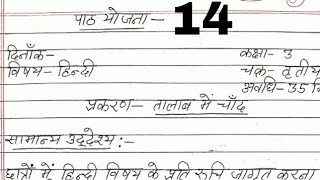 पाठ योजना- 14
दिनाँक- कक्षा- 3
विषय- हिन्दी चक्र- तृतीय
अवधि- 35
प्रकरण- तालाब में चाँद
सामान्य उद्देश्य :-
छात्रों में हिन्दी विषय के प्रति रूचि जागृत करना